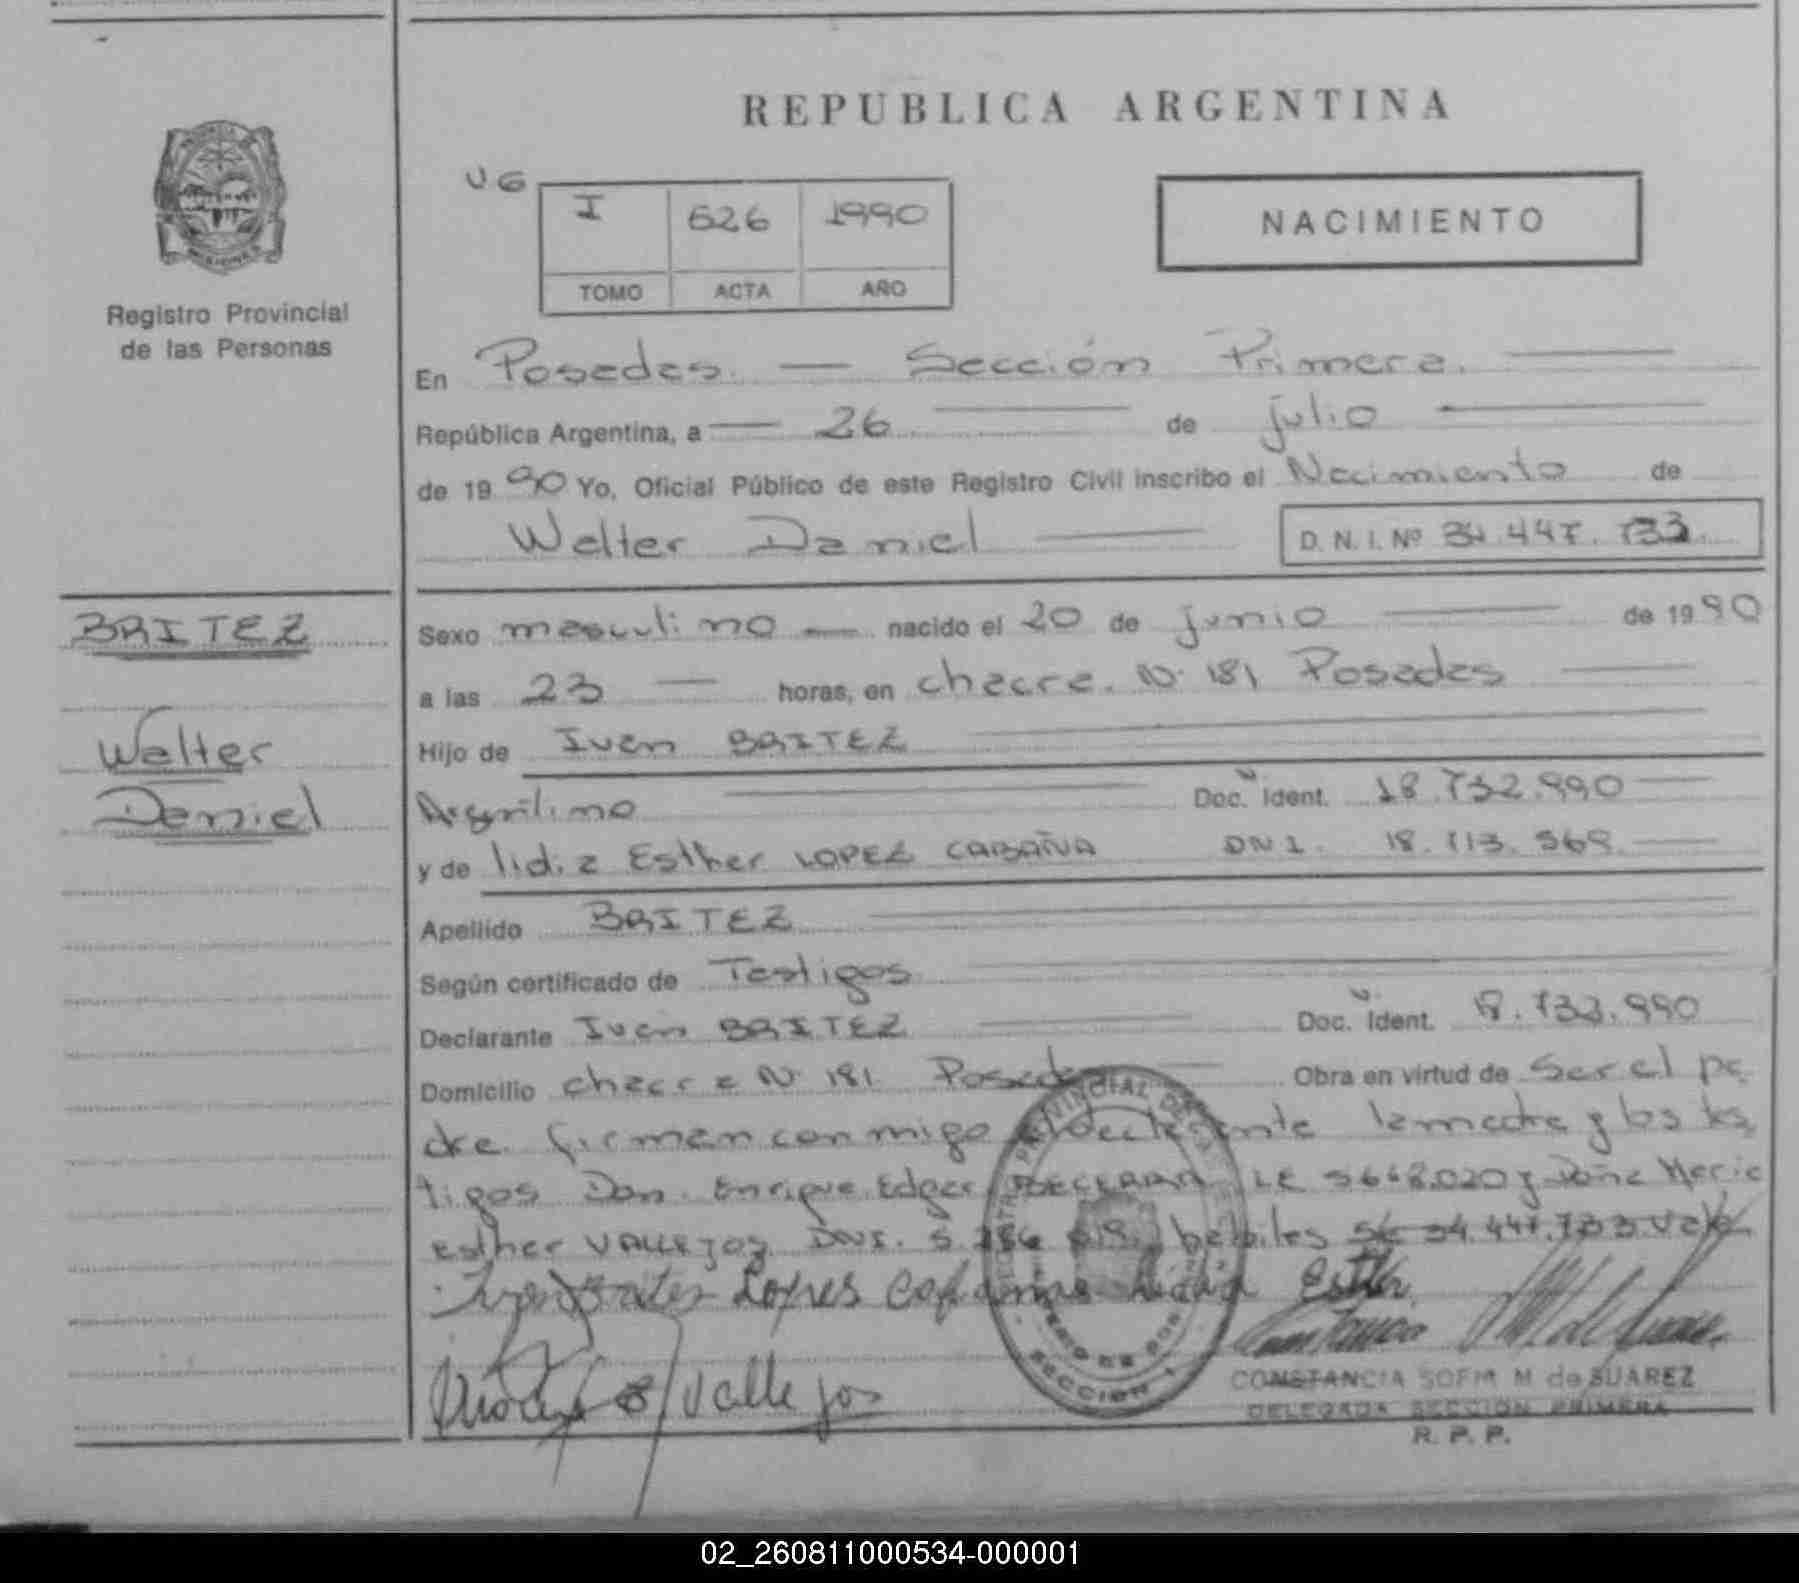 REPUBLICA ARGENTINA
I 626 1990
TOMO ACTA AÑO
NACIMIENTO
Registro Provincial
de las Personas
En Posadas. — Sección Primera.
República Argentina, a — 26 de julio
de 1990 Yo, Oficial Público de este Registro Civil inscribo el Nacimiento de
Walter Daniel
D. N. I. Nº 34.447.733.
BRITEZ
Walter
Daniel
Sexo masculino — nacido el 20 de junio de 1990
a las 23 — horas, en chacra. Nº 181 Posadas
Hijo de Ivan BRITEZ
Argentino Doc. Ident. 18.732.990
y de lidia Esther LOPEZ CABAÑA DNI. 18.713.569.
Apellido BRITEZ
Según certificado de Testigos
Declarante Ivan BRITEZ Doc. Ident. 18.732.990
Domicilio chacra Nº 181. Posadas Obra en virtud de Ser el pa
dre. firman conmigo el declarante la madre y los tes
tigos Don. Enrique Edgar LE 5648.020 y Doña Maria
esther VALLEJOS. DNI. 5. habiles 34.447.733 Vale
Lopes Lidia Esther
Vallejos
REGISTRO PROVINCIAL DE LAS
SECCION 1
CONSTANCIA SOFIA M de SUAREZ
DELEGADA SECCION PRIMERA
R. P. P.
02_260811000534-000001